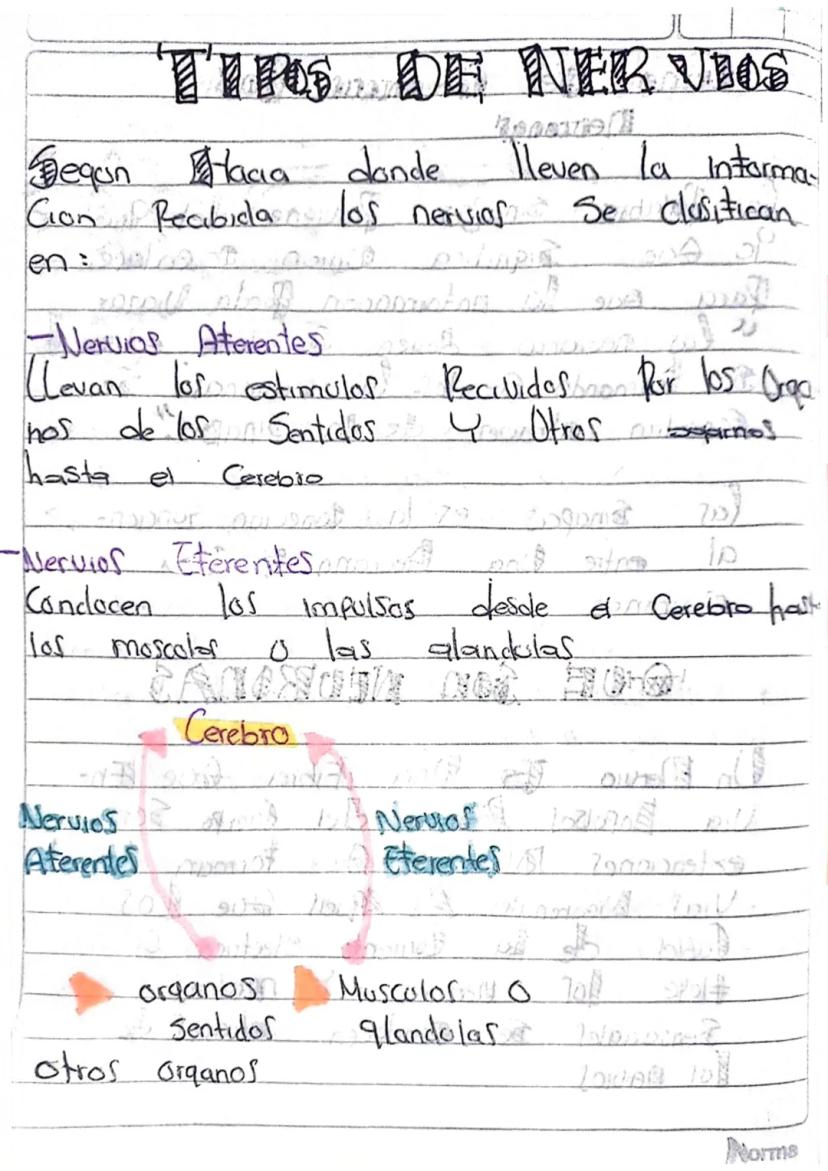 TIPOS DE NERVIOS
Segun Hacia donde lleven la informa-
cion Recibida los nervios Se clasifican
en:
- Nervios Aferentes
Llevan los estimulos Recividos Por los Orga
nos de los Sentidos Y Otros
hasta el Cerebro
- Nervios Eferentes
Conducen los impulsos desde el Cerebro hast
los musculos o las glandulas
Cerebro
Nervios Nervios
Aferentes Eferentes
organos Musculos o
Sentidos glandulas
otros organos
Norma